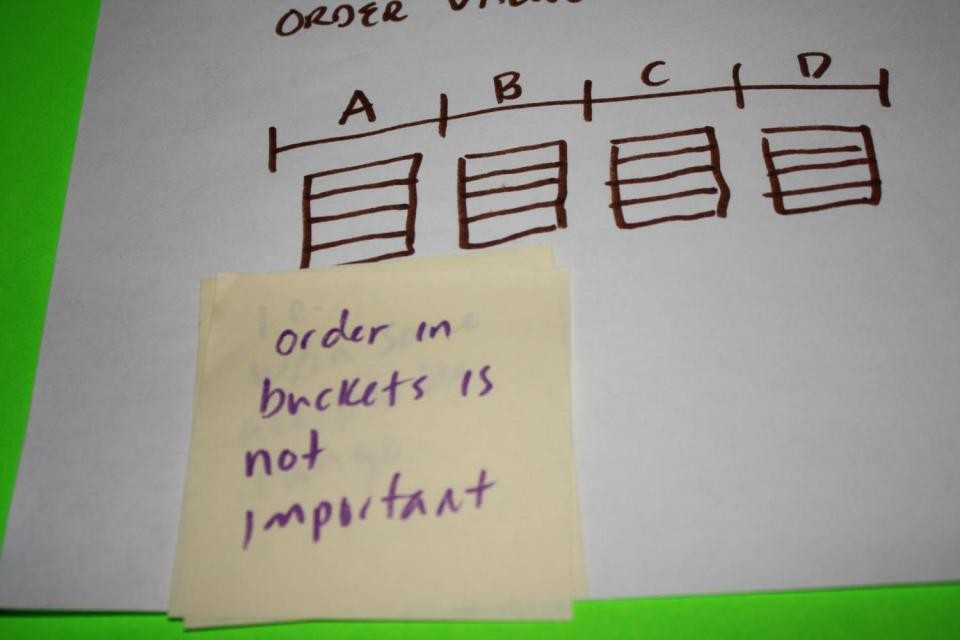 ORDER
A B C D
order in
buckets is
not
important